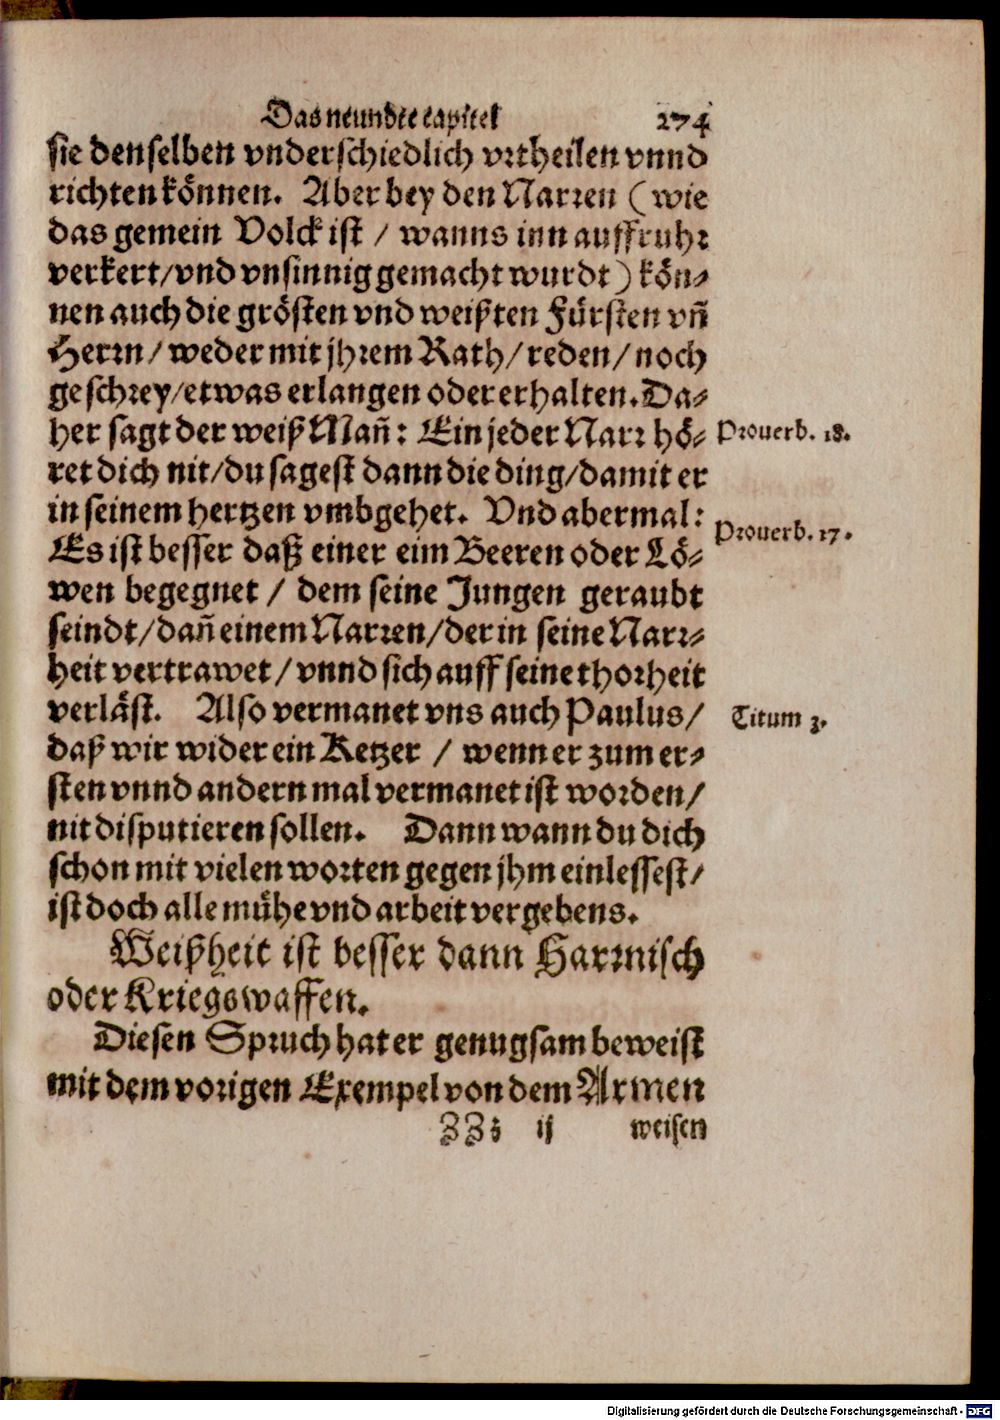 Das neundte capitel 274
sie denselben vnderschiedlich vrtheilen vnnd
richten können. Aber bey den Narren (wie
das gemein Volck ist / wanns inn auffruhr
verkert/vnd vnsinnig gemacht wurdt) kön⸗
nen auch die grösten vnd weißten Fürsten vñ
Herrn/ weder mit jhrem Rath/ reden/ noch
geschrey/etwas erlangen oder erhalten. Da⸗
her sagt der weiß Mañ: Ein jeder Narr hö⸗
Prouerb. 18.
ret dich nit/du sagest dann die ding/damit er
in seinem hertzen vmbgehet. Vnd abermal:
Prouerb. 17.
Es ist besser daß einer eim Beeren oder Lö⸗
wen begegnet / dem seine Jungen geraubt
seindt/dañ einem Narren/der in seine Narr⸗
heit vertrawet/ vnnd sich auff seine thorheit
verläst. Also vermanet vns auch Paulus/
Titum 3.
daß wir wider ein Ketzer / wenn er zum er⸗
sten vnnd andern mal vermanet ist worden/
nit disputieren sollen. Dann wann du dich
schon mit vielen worten gegen jhm einlessest/
ist doch alle mühe vnd arbeit vergebens.
Weißheit ist besser dann Harrnisch
oder Kriegswaffen.
Diesen Spruch hat er genugsam beweist
mit dem vorigen Exempel von dem Armen
ZZz ij weisen
Digitalisierung gefördert durch die Deutsche Forschungsgemeinschaft - DFG